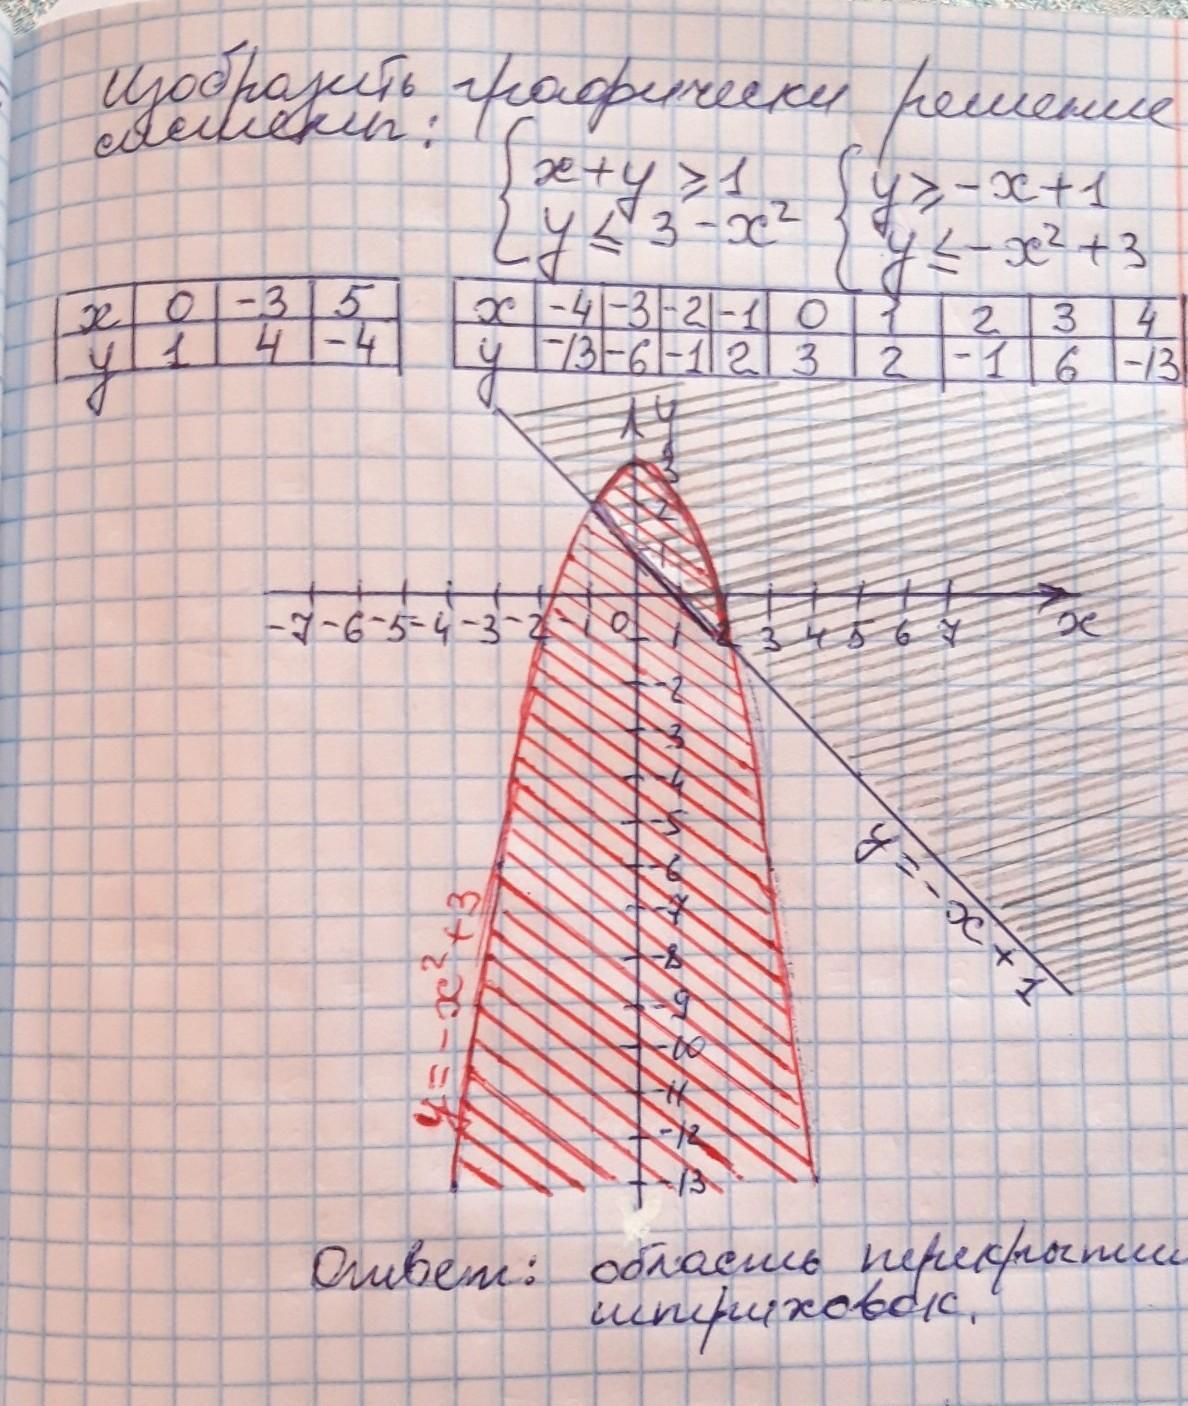 Изобразить графически решение
системы:
{ x+y ⩾ 1
{ y ≤ 3 - x²
{ y ⩾ -x + 1
{ y ≤ -x² + 3
x 0 -3 5
y 1 4 -4
x -4 -3 -2 -1 0 1 2 3 4
y -13 -6 -1 2 3 2 -1 6 -13
y
3
2
1
-7 -6 -5 -4 -3 -2 -1 0 1 2 3 4 5 6 7 x
-2
-3
-4
-5
-6
-7
-8
-9
-10
-11
-12
-13
y = -x + 1
y = -x² + 3
Ответ: область перекрытия
штриховок.